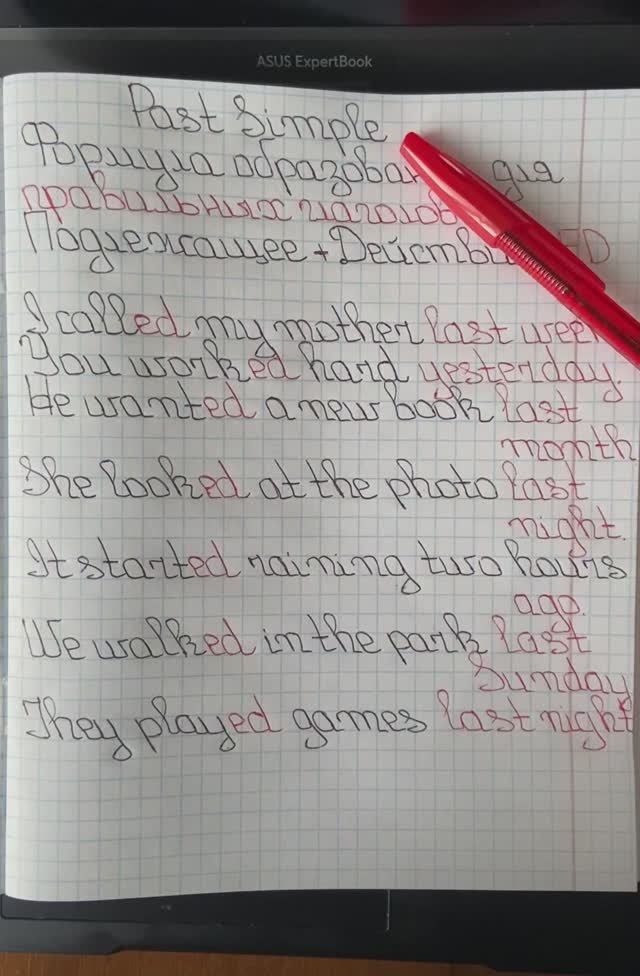 ASUS ExpertBook
Past Simple
Формула образован для
правильных глаголов
Подлежащее + Действи ED
I called my mother last week
You worked hard yesterday.
He wanted a new book last
month
She looked at the photo last
night.
It started raining two hours
ago.
We walked in the park last
Sunday
They played games last night